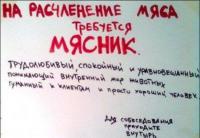 НА РАСЧЛЕНЕНИЕ МЯСА
ТРЕБУЕТСЯ
МЯСНИК.
ТРУДОЛЮБИВЫЙ, СПОКОЙНЫЙ И УРАВНОВЕШАННЫЙ
ПОНИМАЮЩИЙ ВНУТРЕННИЙ МИР ЖИВОТНЫХ
ГУМАННЫЙ К КЛИЕНТАМ И ПРОСТО ХОРОШИЙ ЧЕЛОВЕК
ДЛЯ СОБЕСЕДОВАНИЯ
ПРОХОДИТЕ
ВНУТРЬ